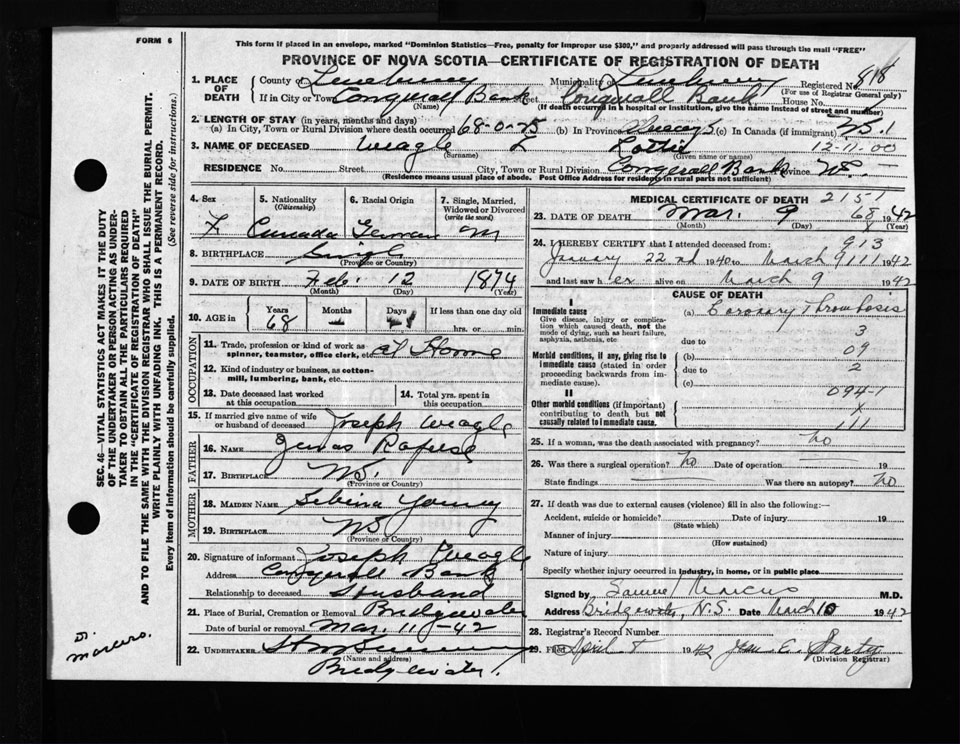 FORM 6
This form if placed in an envelope, marked "Dominion Statistics—Free, penalty for improper use $300," and properly addressed will pass through the mail "FREE"
PROVINCE OF NOVA SCOTIA—CERTIFICATE OF REGISTRATION OF DEATH
1. PLACE OF DEATH County of Lunenburg Municipality of Lunenburg Registered No. 818
(For use of Registrar General only)
If in City or Town Conquerall Bank Street Conquerall Bank House No.
(Name) (If death occurred in a hospital or institution, give the name instead of street and number)
2. LENGTH OF STAY (in years, months and days)
(a) In City, Town or Rural Division where death occurred 68-0-25 (b) In Province (c) In Canada (if immigrant)
3. NAME OF DECEASED Weagle Lottie 12-11-00
(Surname) (Given name or names)
RESIDENCE No. Street City, Town or Rural Division Conquerall Bank Province NS.
(Residence means usual place of abode. Post Office Address for residents in rural parts not sufficient)
4. Sex F
5. Nationality (Citizenship) Canada
6. Racial Origin German
7. Single, Married, Widowed or Divorced (write the word) M
8. BIRTHPLACE
(Province or Country)
9. DATE OF BIRTH Feb. 12 1874
(Month) (Day) (Year)
10. AGE in Years 68 Months Days If less than one day
hrs. or min.
OCCUPATION
11. Trade, profession or kind of work as spinner, teamster, office clerk, etc. at Home
12. Kind of industry or business, as cotton-mill, lumbering, bank, etc.
13. Date deceased last worked at this occupation
14. Total yrs. spent in this occupation
15. If married give name of wife or husband of deceased Joseph Weagle
FATHER
16. NAME Rafuse
17. BIRTHPLACE NS.
(Province or Country)
MOTHER
18. MAIDEN NAME Young
19. BIRTHPLACE NS
(Province or Country)
20. Signature of informant Joseph Weagle
Address Conquerall Bank
Relationship to deceased Husband
21. Place of Burial, Cremation or Removal Bridgewater
Date of burial or removal Mar. 11-42
22. UNDERTAKER
(Name and address)
Bridgewater
MEDICAL CERTIFICATE OF DEATH
2151
23. DATE OF DEATH Mar. 9 68 1942
(Month) (Day) (Year)
913
24. I HEREBY CERTIFY that I attended deceased from:
January 22nd 1940 to March 9 111 1942
and last saw her alive on March 9 1942
CAUSE OF DEATH
I
Immediate cause
Give disease, injury or complication which caused death, not the mode of dying, such as heart failure, asphyxia, asthenia, etc.
(a) Coronary Thrombosis
3
due to
Morbid conditions, if any, giving rise to immediate cause (stated in order proceeding backwards from immediate cause).
(b) 09
due to 2
(c)
II
Other morbid conditions (if important) contributing to death but not causally related to immediate cause.
094-1
X
111
25. If a woman, was the death associated with pregnancy? no
26. Was there a surgical operation? no Date of operation 19
State findings Was there an autopsy? no
27. If death was due to external causes (violence) fill in also the following:—
Accident, suicide or homicide? Date of injury 19
(State which)
Manner of injury
(How sustained)
Nature of injury
Specify whether injury occurred in industry, in home, or in public place
Signed by Samuel Marcus M.D.
Address Bridgewater, N.S. Date March 10 1942
28. Registrar's Record Number
29. Filed April 8 1942
(Division Registrar)
SEC. 46—VITAL STATISTICS ACT MAKES IT THE DUTY
OF THE UNDERTAKER OR PERSON ACTING AS UNDER-
TAKER TO OBTAIN ALL THE PARTICULARS REQUIRED
IN THE "CERTIFICATE OF REGISTRATION OF DEATH"
AND TO FILE THE SAME WITH THE DIVISION REGISTRAR WHO SHALL ISSUE THE BURIAL PERMIT.
WRITE PLAINLY WITH UNFADING INK. THIS IS A PERMANENT RECORD.
Every item of information should be carefully supplied. (See reverse side for instructions.)
Dr. Marcus.